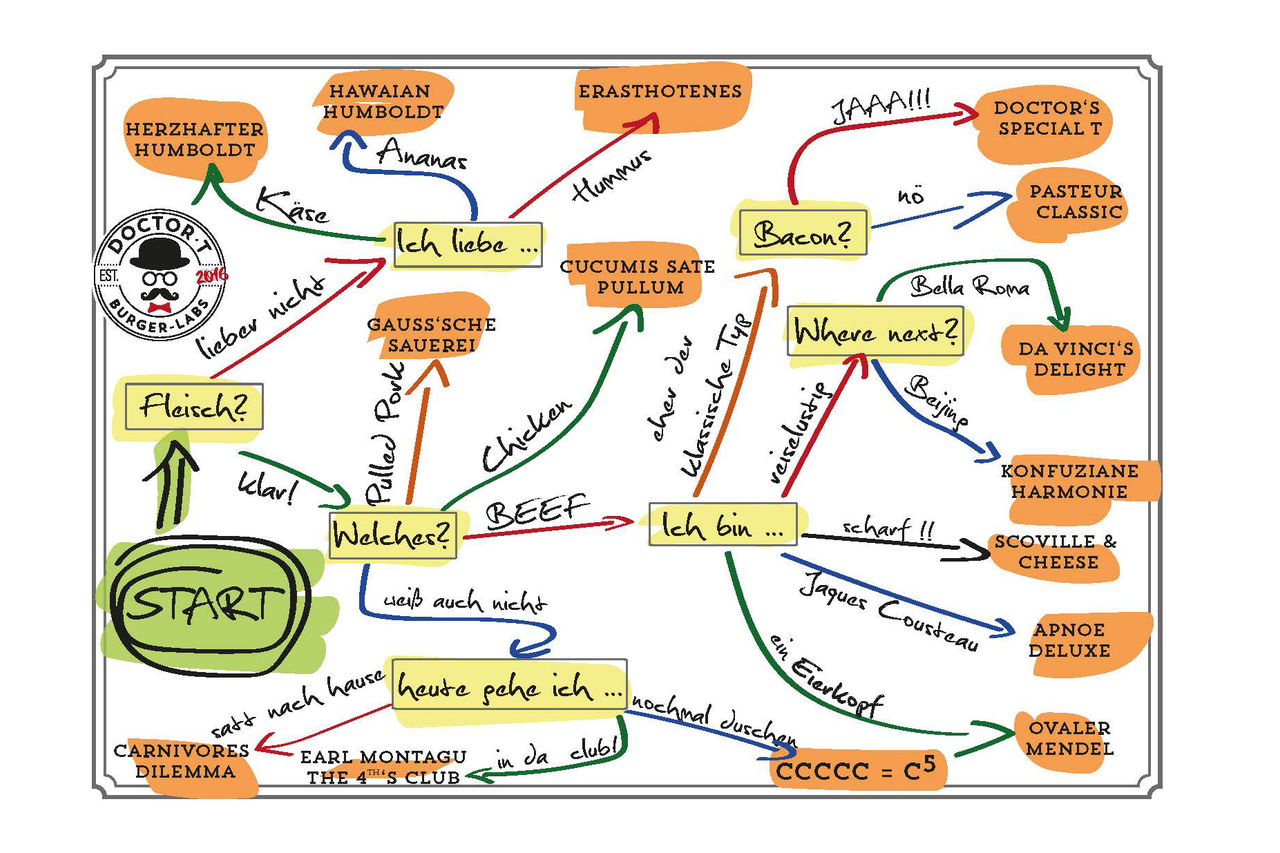 HERZHAFTER
HUMBOLDT
HAWAIAN
HUMBOLDT
ERASTHOTENES
JAAA!!!
DOCTOR'S
SPECIAL T
Käse
Ananas
Hummus
nö
PASTEUR
CLASSIC
Ich liebe ...
Bacon?
DOCTOR·T
EST.
2016
BURGER-LABS
lieber nicht
CUCUMIS SATE
PULLUM
Bella Roma
GAUSS'SCHE
SAUEREI
eher der
klassische Typ
Where next?
DA VINCI'S
DELIGHT
Fleisch?
Pulled Pork
Chicken
reiselustig
Beijing
Klar!
KONFUZIANE
HARMONIE
Welches?
BEEF
Ich bin ...
scharf !!
SCOVILLE &
CHEESE
START
weiß auch nicht
Jaques Cousteau
APNOE
DELUXE
ein Eierkopf
heute gehe ich ...
satt nach hause
nochmal duschen
in da club!
OVALER
MENDEL
CARNIVORES
DILEMMA
EARL MONTAGU
THE 4TH'S CLUB
CCCCC = C⁵